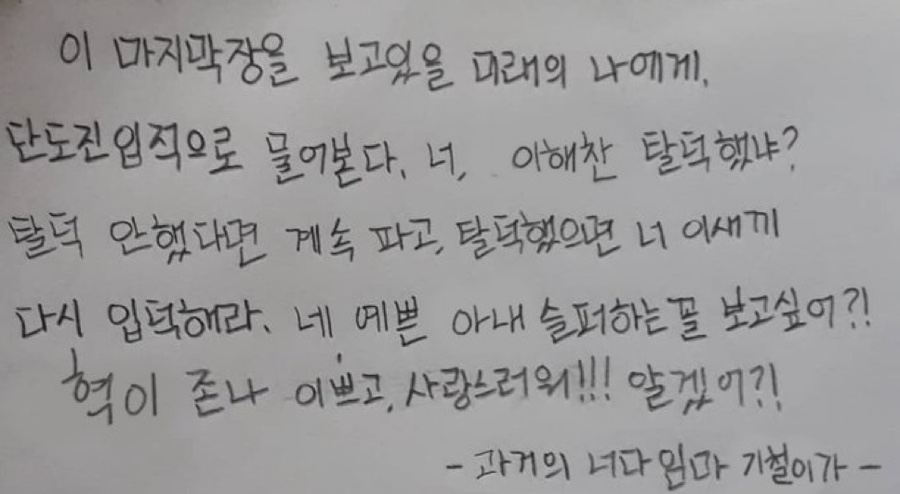 이 마지막장을 보고있을 미래의 나에게,
단도진입적으로 물어본다. 너, 이해찬 탈덕했냐?
탈덕 안했다면 계속 파고, 탈덕했으면 너 이새끼
다시 입덕해라. 네 예쁜 아내 슬퍼하는꼴 보고싶어?!
혁이 존나 이쁘고, 사랑스러워!!! 알겠어?!
- 과거의 너다 임마 기철이가 -